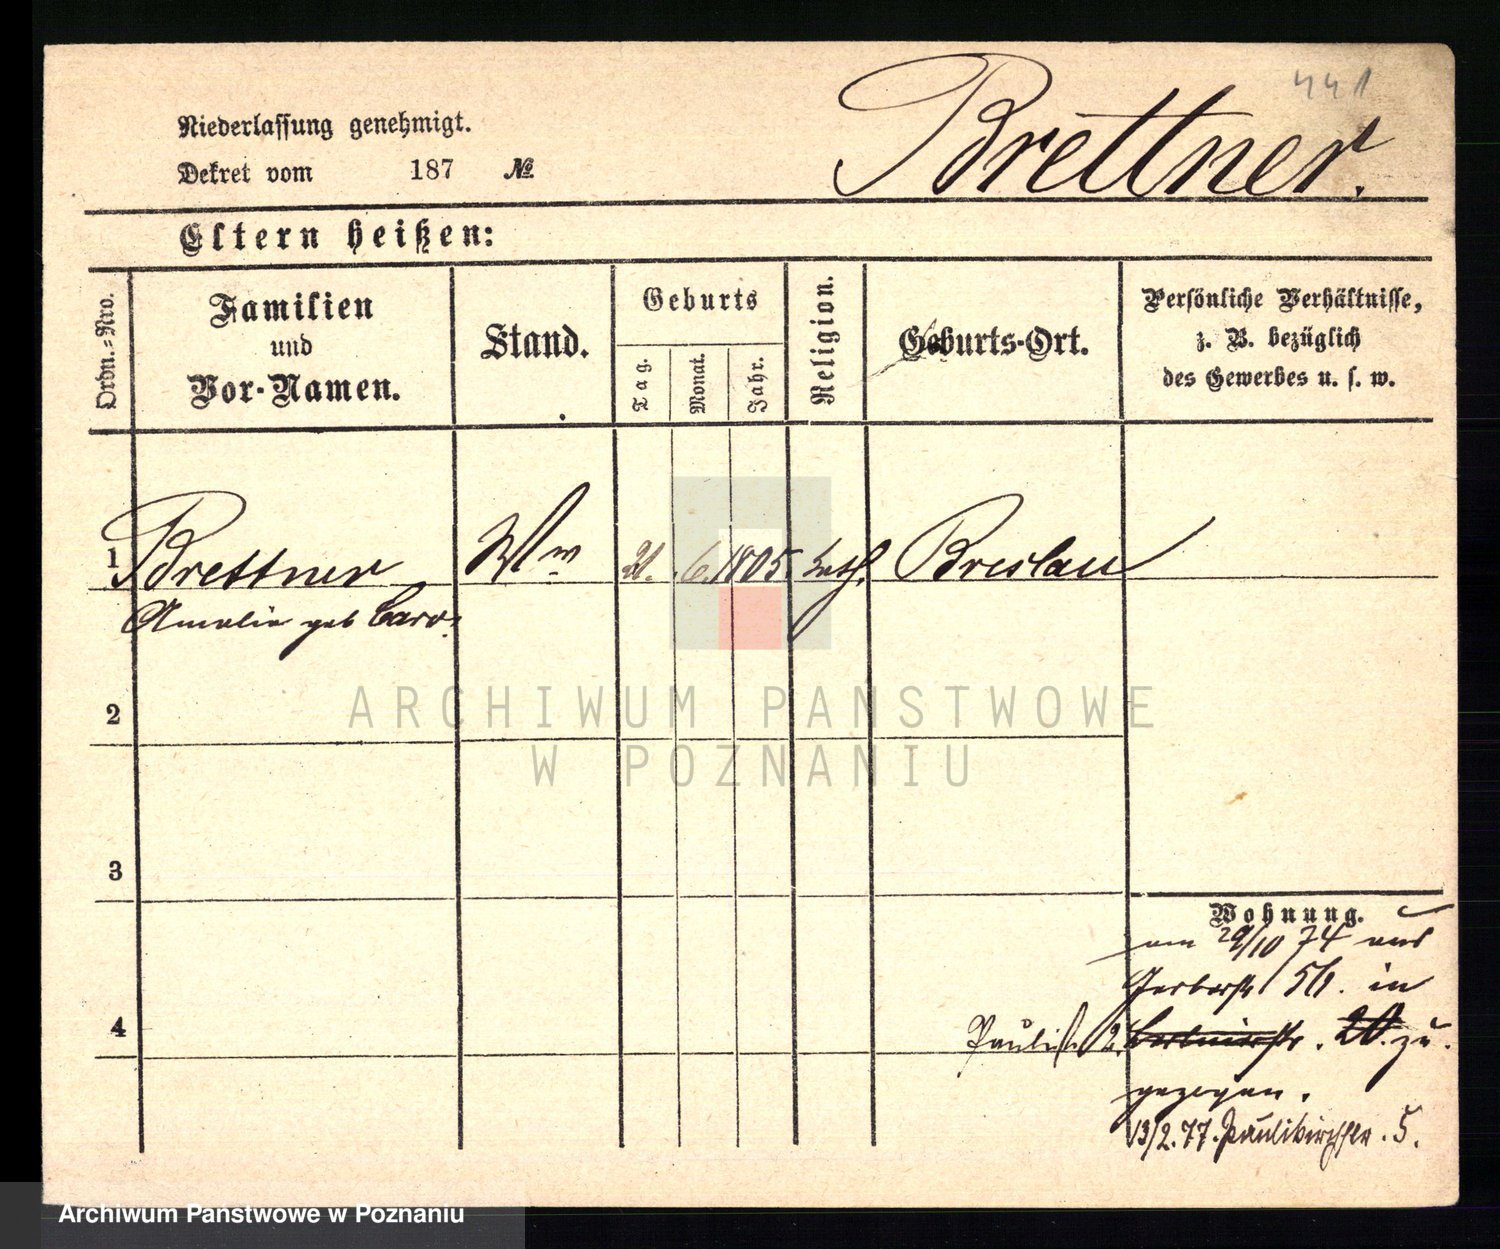 441
Brettner.
Niederlassung genehmigt.
Dekret vom 187 №
Eltern heißen:
Ordn.=Nro.
Familien
und
Vor-Namen.
Stand.
Geburts
Tag.
Monat.
Jahr.
Religion.
Geburts-Ort.
Persönliche Verhältnisse,
z. B. bezüglich
des Gewerbes u. s. w.
1 Brettner Ww 21. 6. 1805. kath. Breslau
Amalie geb Caro.
2
3
4
Wohnung.
am 29/10 74 aus
Gerberstr 51. in
Paulistr 2. Berlinerstr. 20. zu
gezogen.
13/2.77. Paulikirchstr. 5.
ARCHIWUM PAŃSTWOWE
W POZNANIU
Archiwum Państwowe w Poznaniu